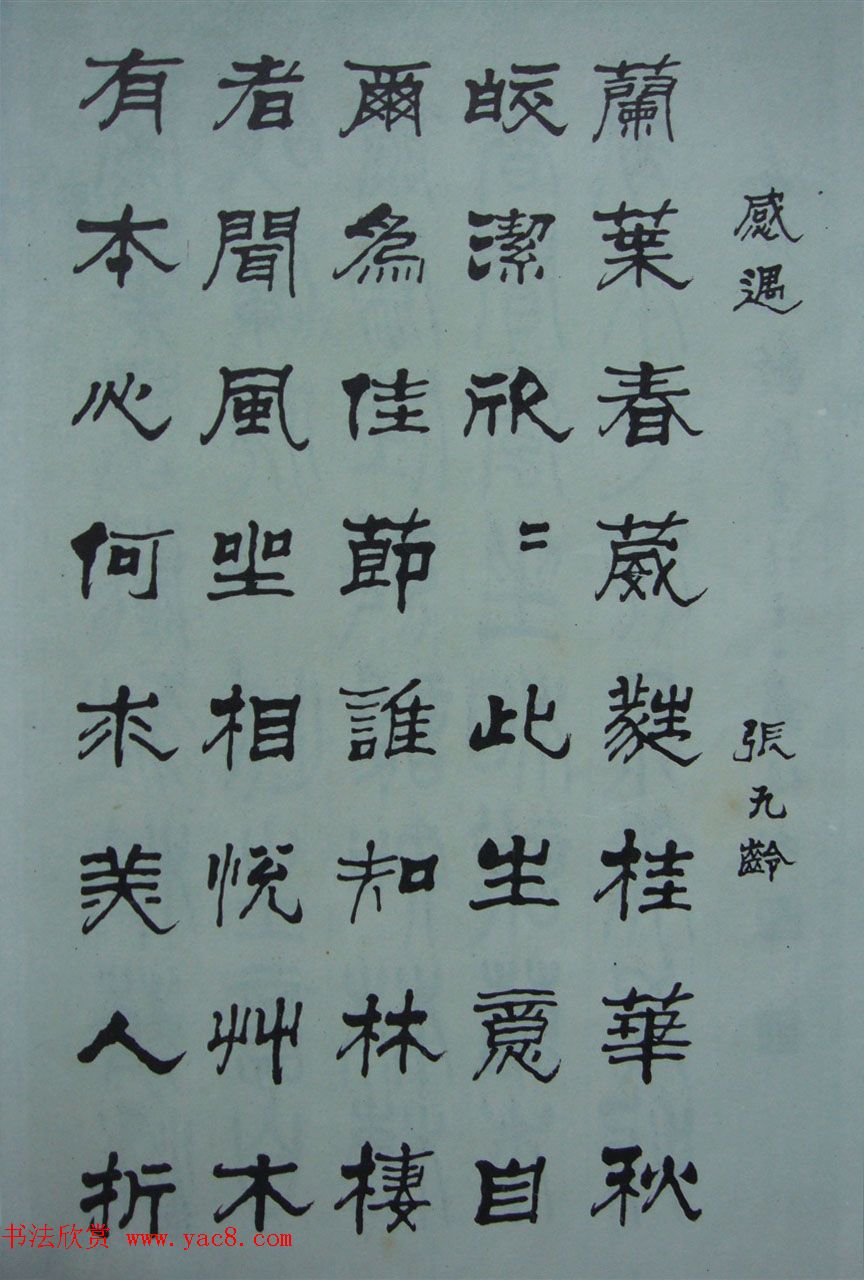 感遇 張九齡
蘭葉春葳蕤桂華秋
皎潔欣〻此生意自
爾為佳節誰知林棲
者聞風坐相悅艸木
有本心何求美人折
书法欣赏 www.yac8.com